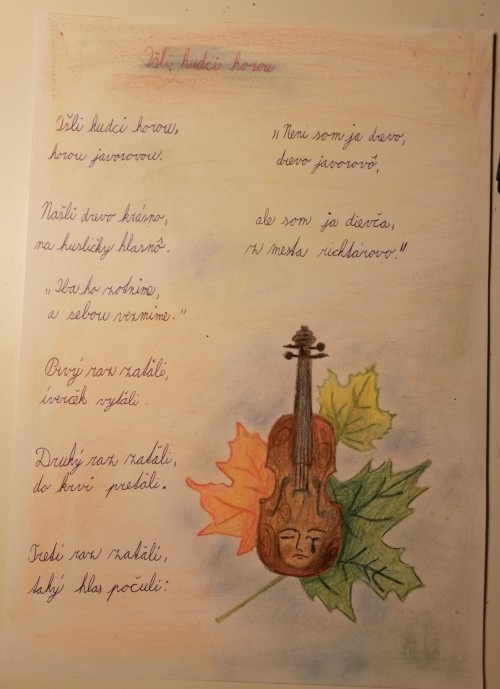 Išli hudci horou
Išli hudci horou,
horou javorovou.
Našli drevo krásno,
na husličky hlasnô.
„Iba ho zotnime,
a sebou vezmime."
Prvý raz zaťáli,
íverček vyťáli.
Druhý raz zaťáli,
do krvi preťáli.
Tretí raz zaťáli,
taký hlas počuli:
„Neni som ja drevo,
drevo javorovô,
ale som ja dievča,
z mesta richtárovo."